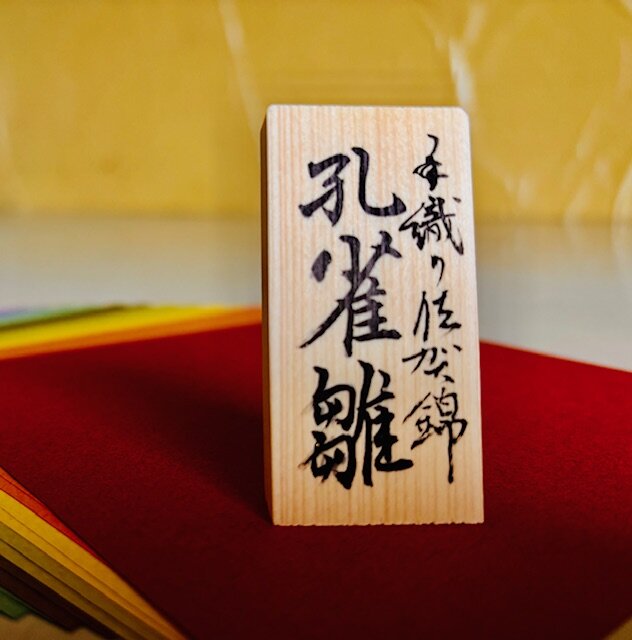 手織り佐賀錦
孔雀雛